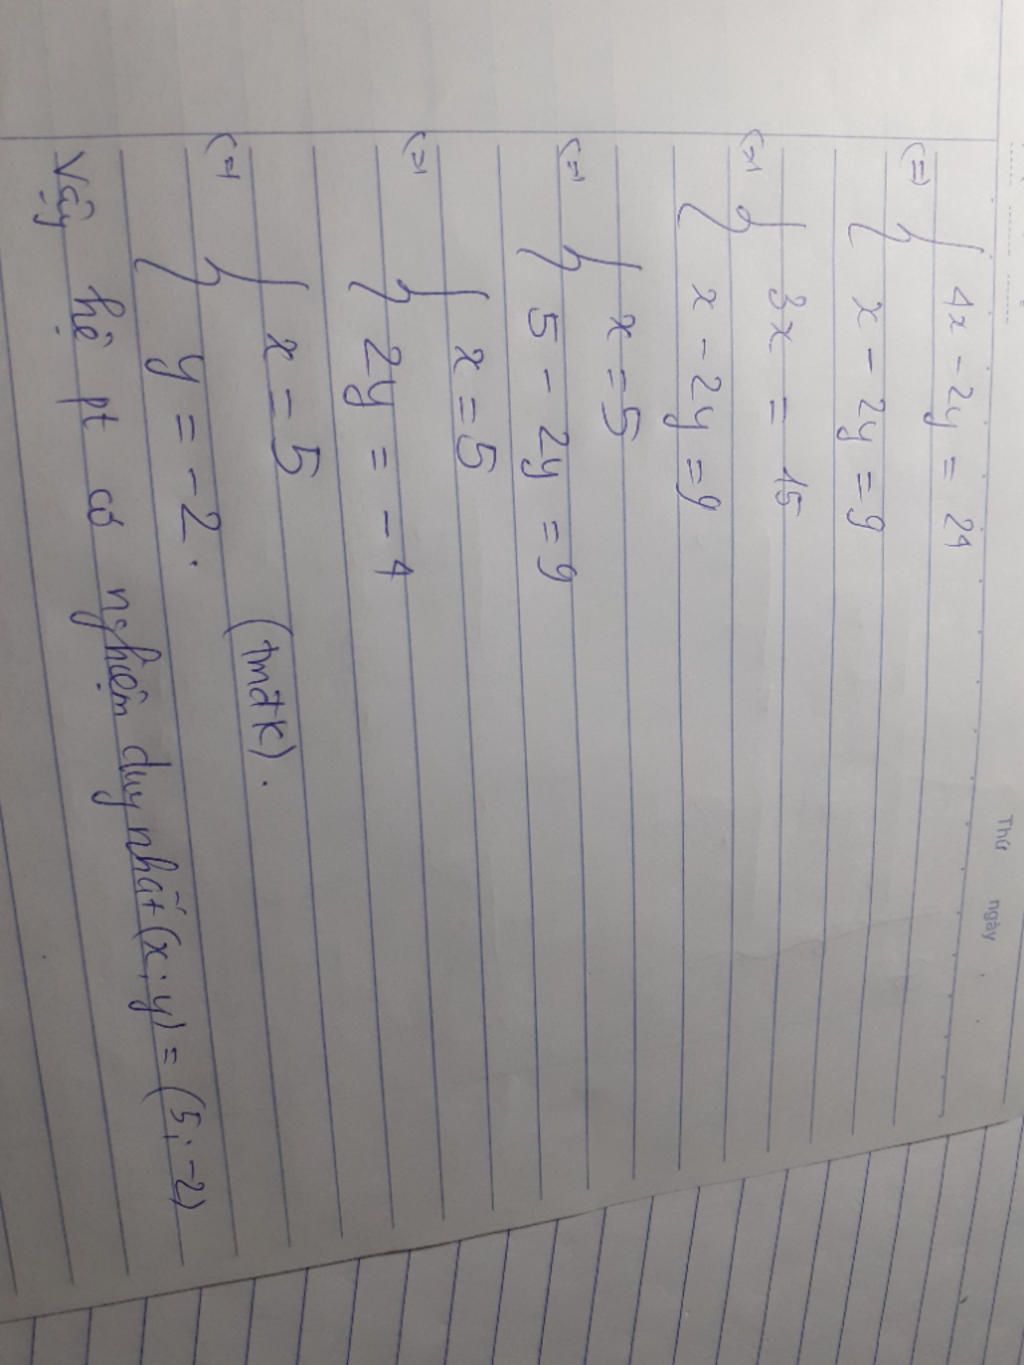 Thứ ngày
(=) { 4x - 2y = 24
x - 2y = 9
(=) { 3x = 15
x - 2y = 9
(=) { x = 5
5 - 2y = 9
(=) { x = 5
2y = -4
(=) { x = 5
y = -2. (tmđk).
Vậy hệ pt có nghiệm duy nhất (x; y) = (5; -2)